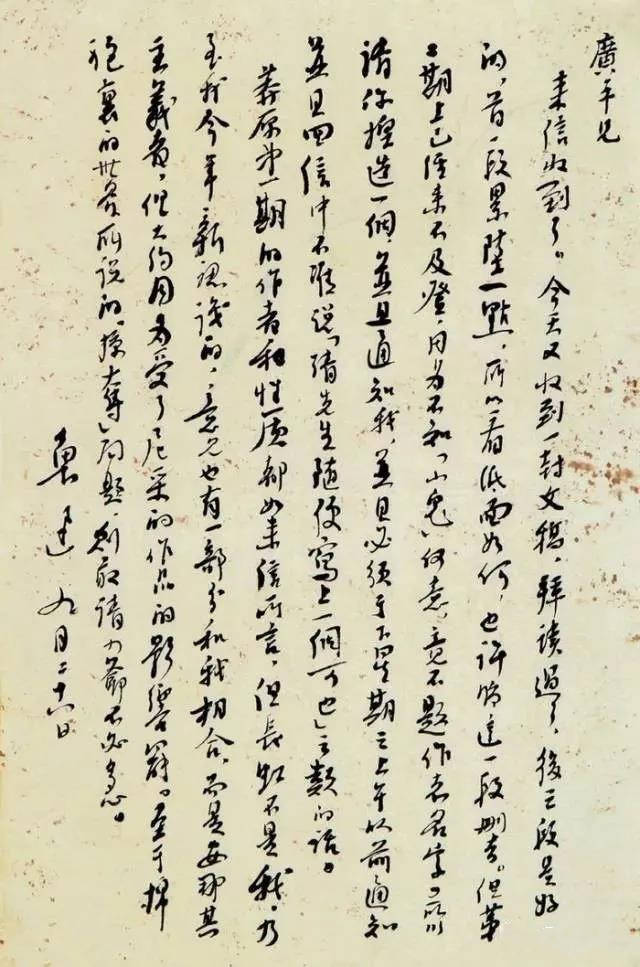 廣平兄
来信收到了。今天又收到一封文稿，拜讀過了，後三段是好
的，首一段累墜一點，所以看紙面如何，也許將這一段刪去。但第
二期上已經来不及登，因为不知「小鬼」何意，竟不題作者名字。所以
請你捏造一個，並且通知我，並且必須于下星期三上午以前通知
並且回信中不准説「請先生随便寫上一個可也」之類的話。
莽原第一期的作者和性質都如来信所言，但長虹不是我，乃
是我今年新認識的，意見也有一部分和我相合，而是安那其
主義者，但大約因为受了尼采的作品的影響罷。至于棉
袍裏的世界所説的「掠奪」問題，則敢請少爺不必多心。
魯迅 九月二十六日